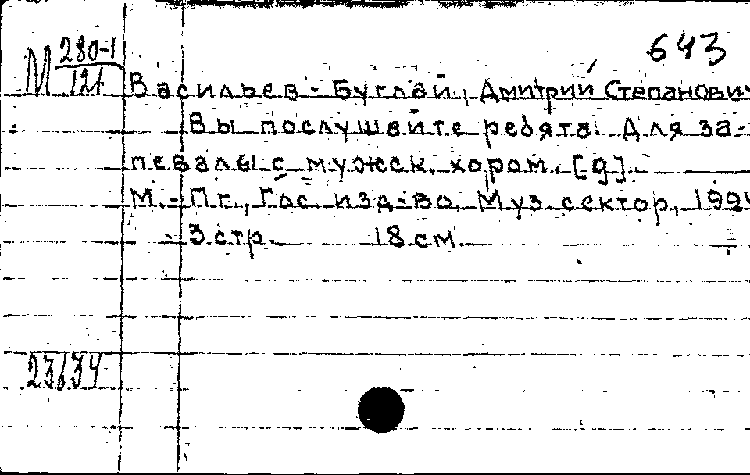 643
М 280-1
121
Васильев-Буглай, Дмитрий Степанович
Вы послушайте ребята. Для за-
певалы с мужск. хором. [g].
М.-Пг., Гос. изд-во, Муз. сектор, 1924
3 стр. 18 см.
23634